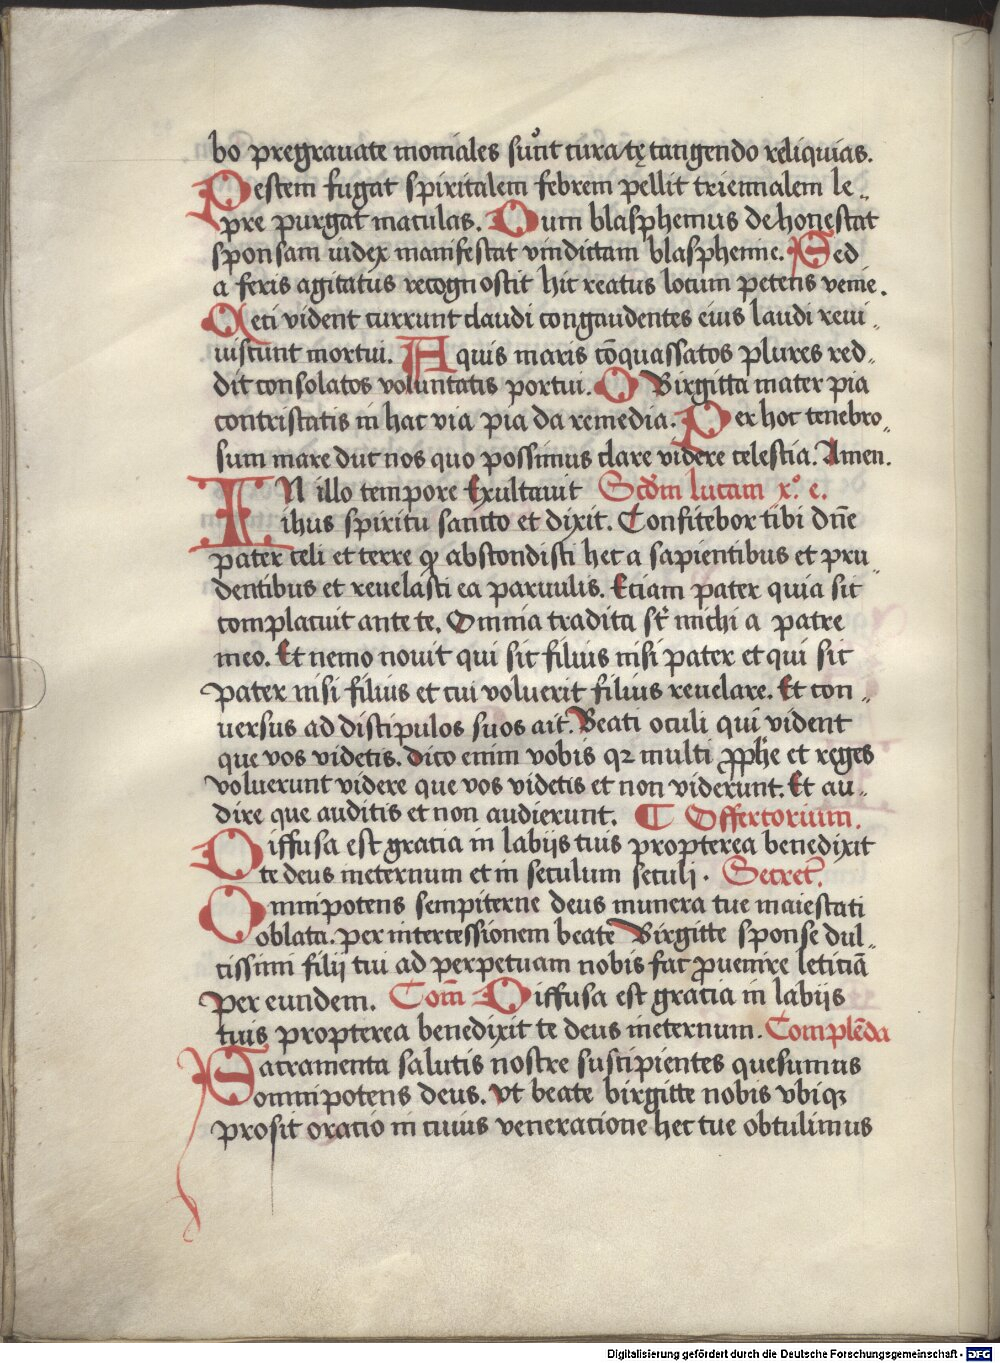 bo pregrauate moniales sunt curatę tangendo reliquias.
Pestem fugat spiritalem febrem pellit triennalem le-
pre purgat maculas. Dum blasphemus dehonestat
sponsam iudex manifestat vindictam blasphemie. Sed
a feris agitatus recognoscit hic reatus locum petens venie.
Ceci vident currunt claudi congaudentes eius laudi reui-
uiscunt mortui. Aquis maris cōquassatos plures red-
dit consolatos voluntatis portui. O Birgitta mater pia
contristatis in hac via pia da remedia. Per hoc tenebro-
sum mare duc nos quo possimus clare videre celestia. Amen.
IN illo tempore Exultauit Scdm lucam x.º c.
ihus spiritu sancto et dixit. Confitebor tibi dn̄e
pater celi et terre qꝫ abscondisti hec a sapientibus et pru-
dentibus et reuelasti ea paruulis. Etiam pater quia sit
complacuit ante te. Omnia tradita st̄ michi a patre
meo. Et nemo nouit qui sit filius nisi pater et qui sit
pater nisi filius et cui voluerit filius reuelare. Et con-
uersus ad discipulos suos ait. Beati oculi qui vident
que vos videtis. dico enim vobis qꝛ multi ꝓphe et reges
voluerunt videre que vos videtis et non viderunt. Et au-
dire que auditis et non audierunt. ¶ Offertorium.
Diffusa est gracia in labijs tuis propterea benedixit
te deus ineternum et in seculum seculi. Secret̄.
Omnipotens sempiterne deus munera tue maiestati
oblata. per intercessionem beate Birgitte sponse dul-
cissimi filij tui ad perpetuam nobis fac ꝓuenire leticiā
per eundem. Com̄ Diffusa est gracia in labijs
tuis propterea benedixit te deus ineternum. Complēda
Sacramenta salutis nostre suscipientes quesumus
omnipotens deus. vt beate birgitte nobis vbiqꝫ
prosit oracio in cuius veneracione hec tue obtulimus
Digitalisierung gefördert durch die Deutsche Forschungsgemeinschaft - DFG